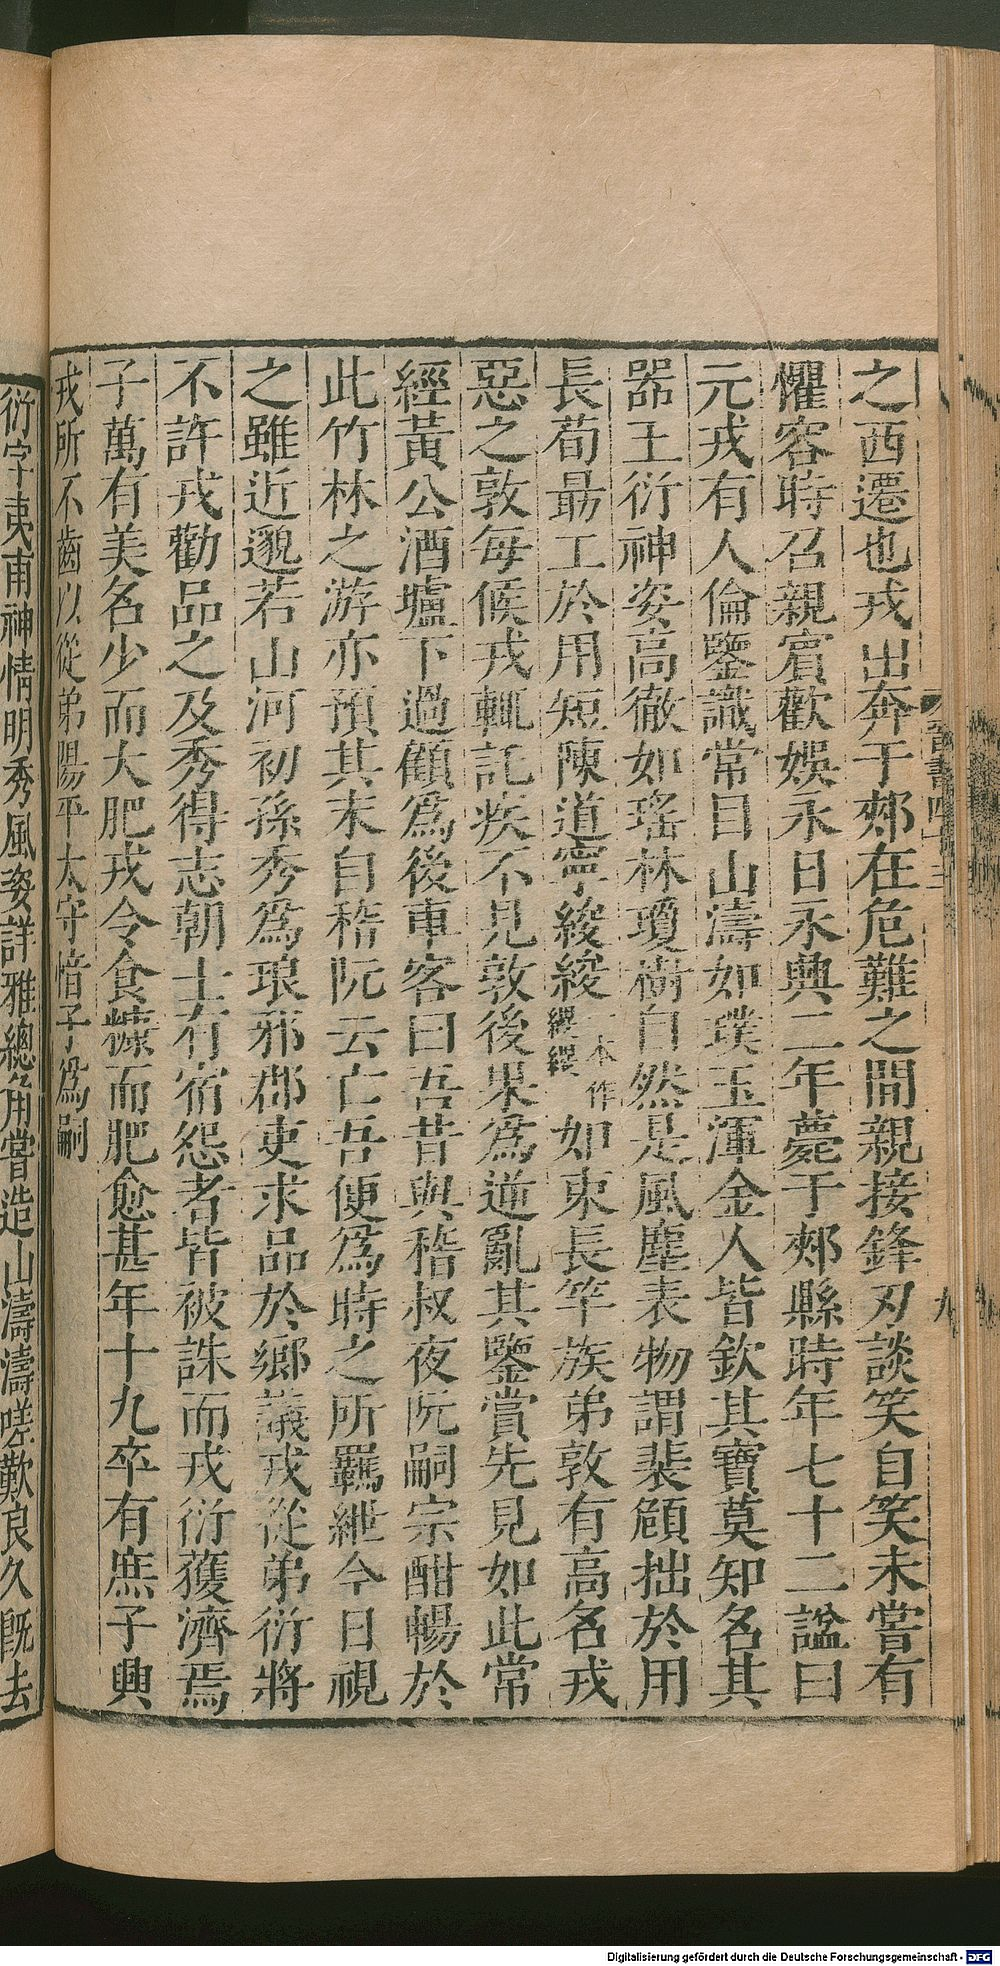 之西遷也戎出奔于郟在危難之間親接鋒刃談笑自笑未嘗有
懼容時召親賓歡娛永日永興二年薨于郟縣時年七十二諡曰
元戎有人倫鑒識常目山濤如璞玉渾金人皆欽其寶莫知名其
器王衍神姿高徹如瑤林瓊樹自然是風塵表物謂裴頠拙於用
長荀勗工於用短陳道寧䋎䋎一本作纙纙如束長竿族弟敦有高名戎
惡之敦每候戎輒託疾不見敦後果為逆亂其鑒賞先見如此常
經黃公酒壚下過顧為後車客曰吾昔與嵇叔夜阮嗣宗酣暢於
此竹林之游亦預其末自嵇阮云亡吾便為時之所羈紲今日視
之雖近邈若山河初孫秀為琅邪郡吏求品於鄉議戎從弟衍將
不許戎勸品之及秀得志朝士有宿怨者皆被誅而戎衍獲濟焉
子萬有美名少而大肥戎令食糠而肥愈甚年十九卒有庶子興
戎所不齒以從弟陽平太守愔子為嗣
衍字夷甫神情明秀風姿詳雅總角嘗造山濤濤嗟歎良久既去
晉書四十三
九
Digitalisierung gefördert durch die Deutsche Forschungsgemeinschaft - DFG